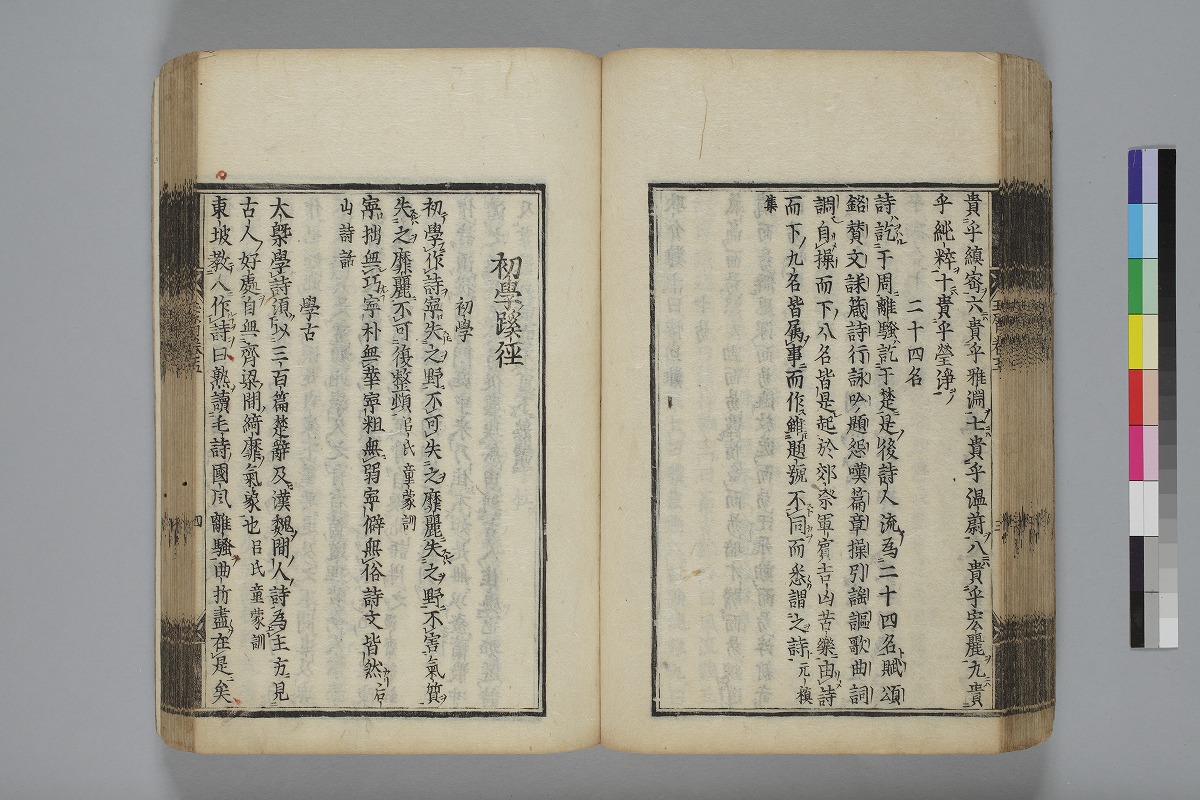 貴乎縝密六貴乎雅淵七貴乎溫蔚八貴乎宏麗九貴
乎純粹十貴乎瑩淨
二十四名
詩訖于周離騷訖于楚是後詩人流爲二十四名賦頌
銘贊文誄箴詩行詠吟題怨嘆篇章操引謠謳歌曲詞
調自操而下八名皆是起於郊祭軍賓吉凶苦樂由詩
而下九名皆屬事而作雖題號不同而悉謂之詩元稹
集
初學蹊徑
初學
初學作詩寧失之野不可失之靡麗失之野不害氣質
失之靡麗不可復整頓呂氏童蒙訓
寧拙無巧寧朴無華寧粗無弱寧僻無俗詩文皆然后
山詩話
學古
大槩學詩須以三百篇楚辭及漢魏間人詩為主方見
古人好處自無齊梁間綺靡氣象也呂氏童蒙訓
東坡教人作詩曰熟讀毛詩國風離騷曲折盡在是矣
三
四